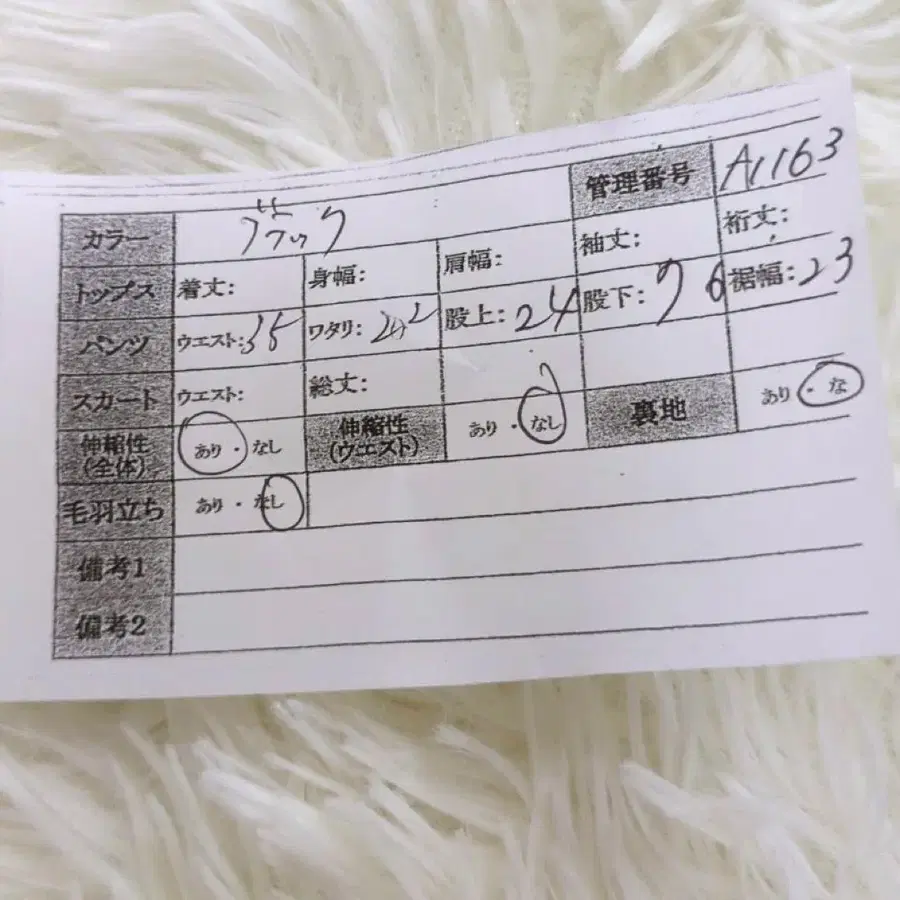 カラー ブラック 管理番号 A1163
トップス 着丈: 身幅: 肩幅: 袖丈: 裄丈:
パンツ ウエスト:35 ワタリ: 股上:24 股下:76 裾幅:23
スカート ウエスト: 総丈:
伸縮性(全体) あり・なし 伸縮性(ウエスト) あり・なし 裏地 あり・な
毛羽立ち あり・なし
備考1
備考2